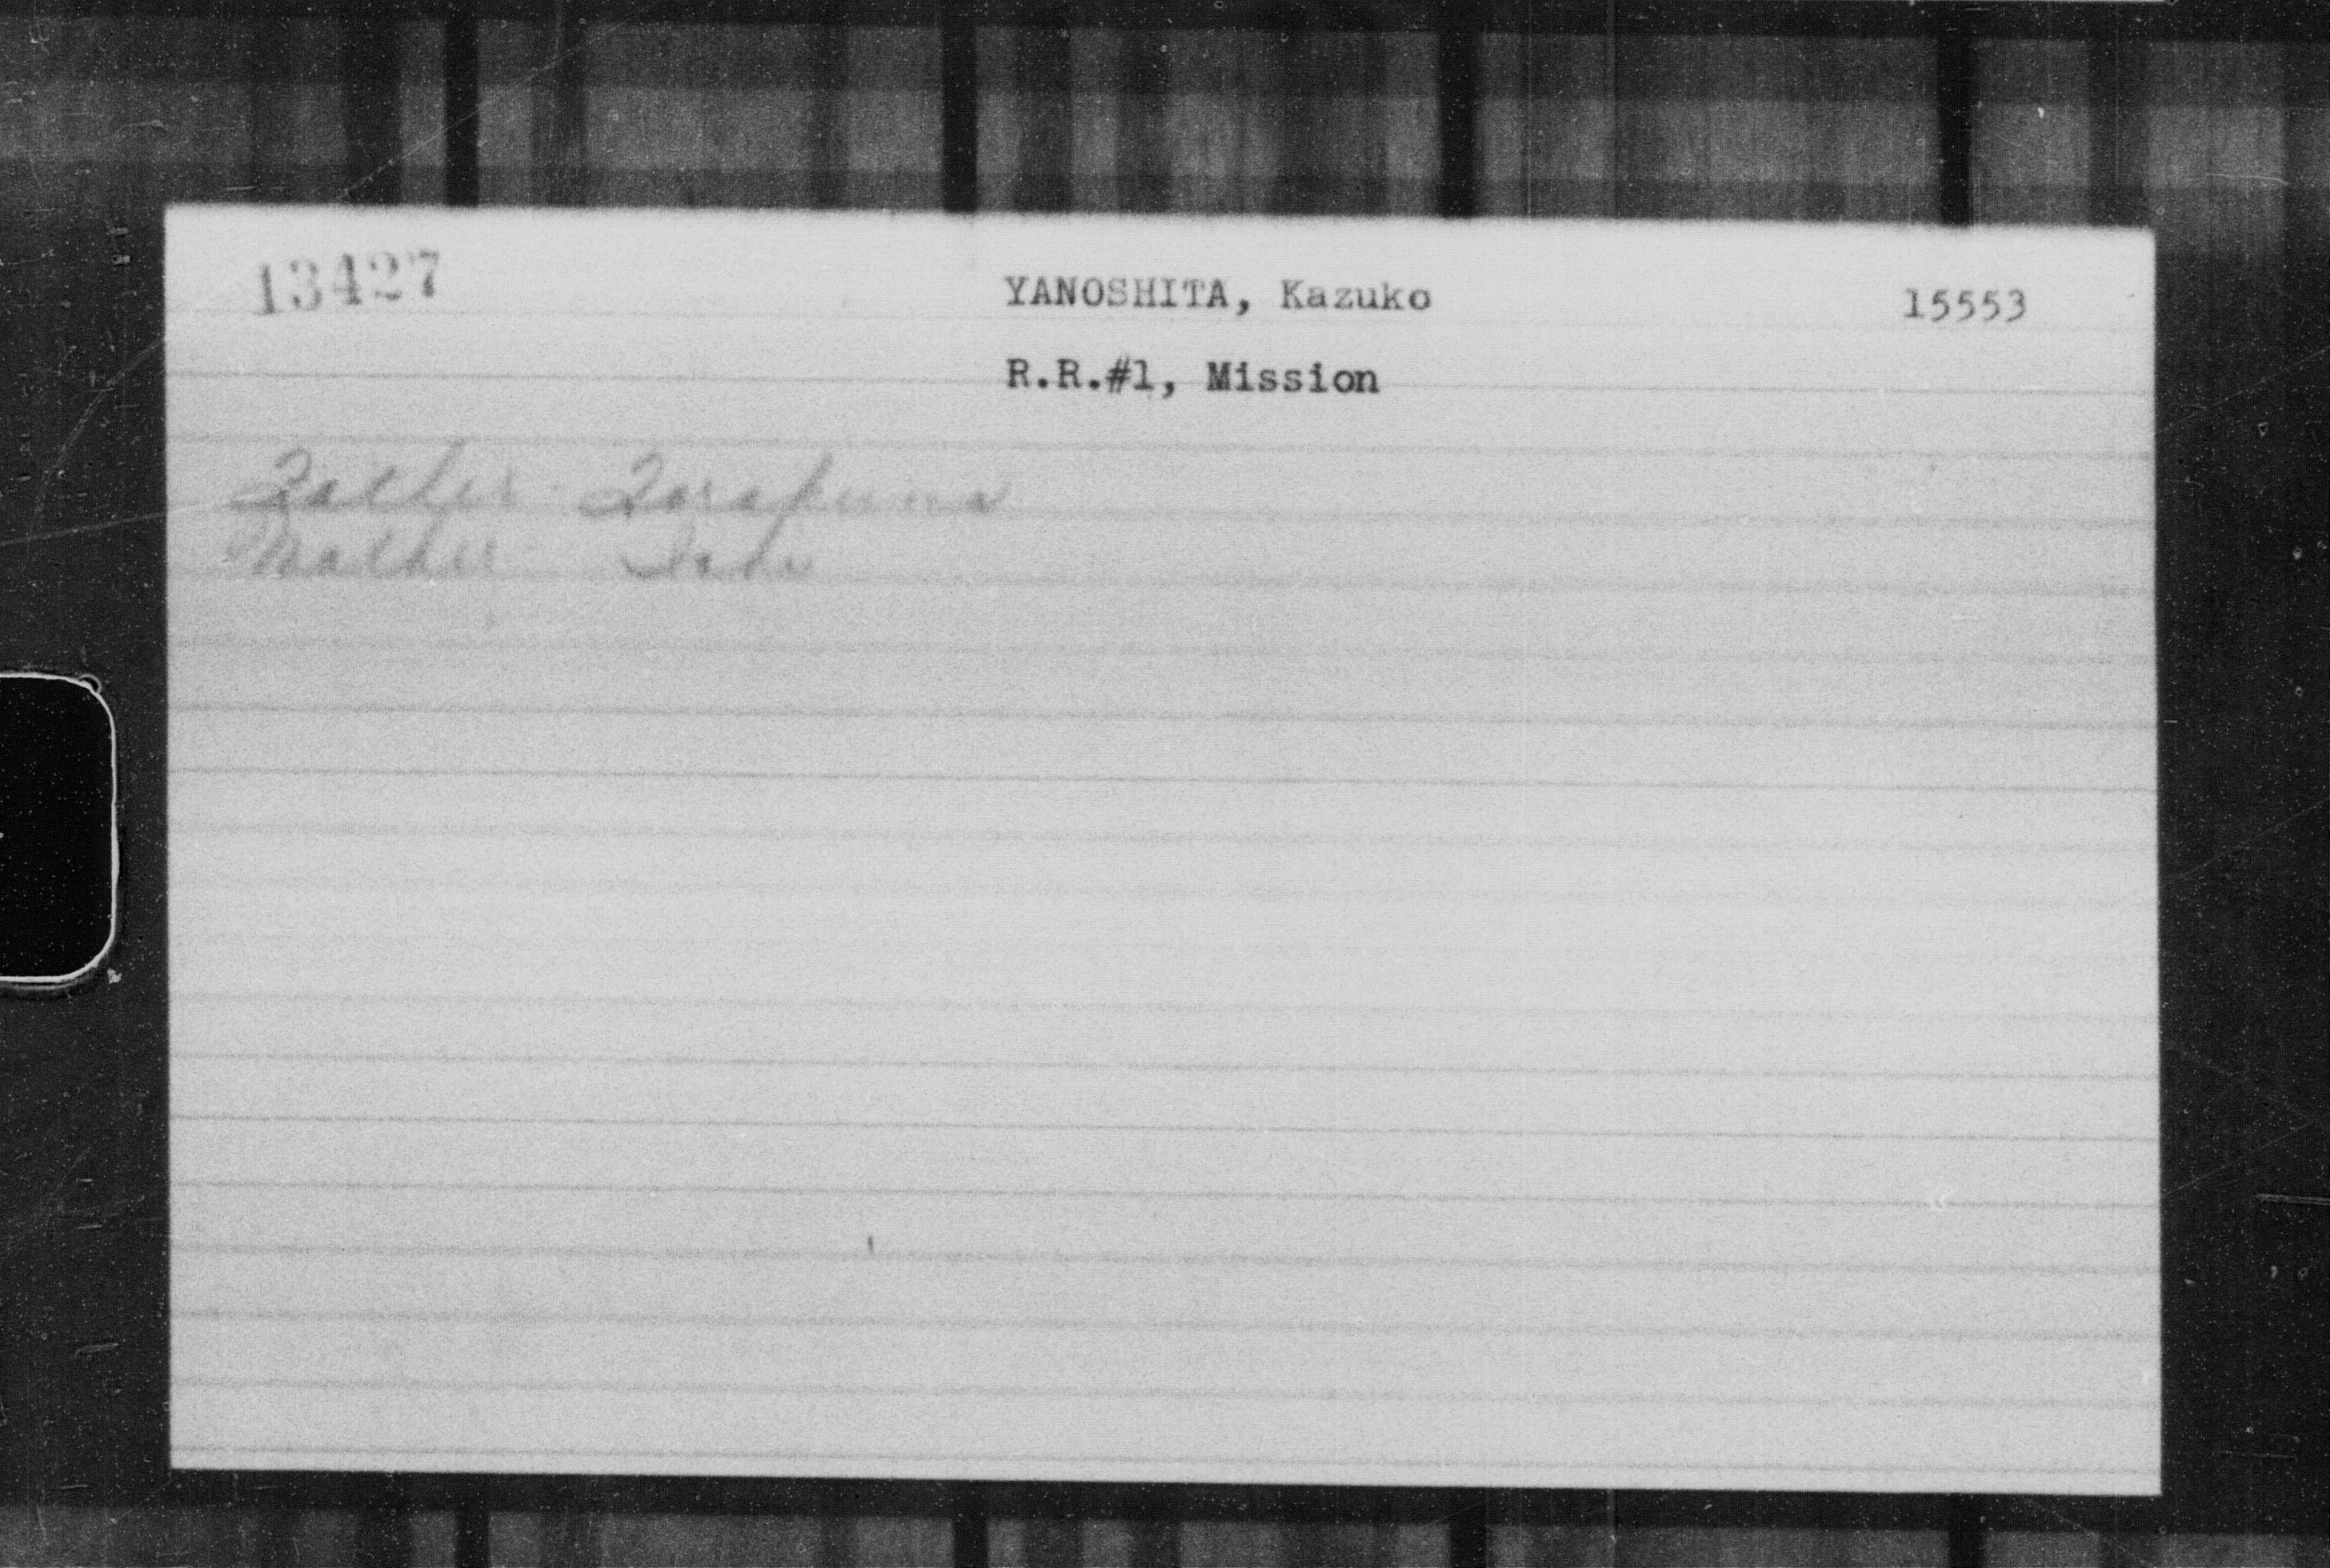 13427 YANOSHITA, Kazuko 15553
R.R.#1, Mission
Father
Mother